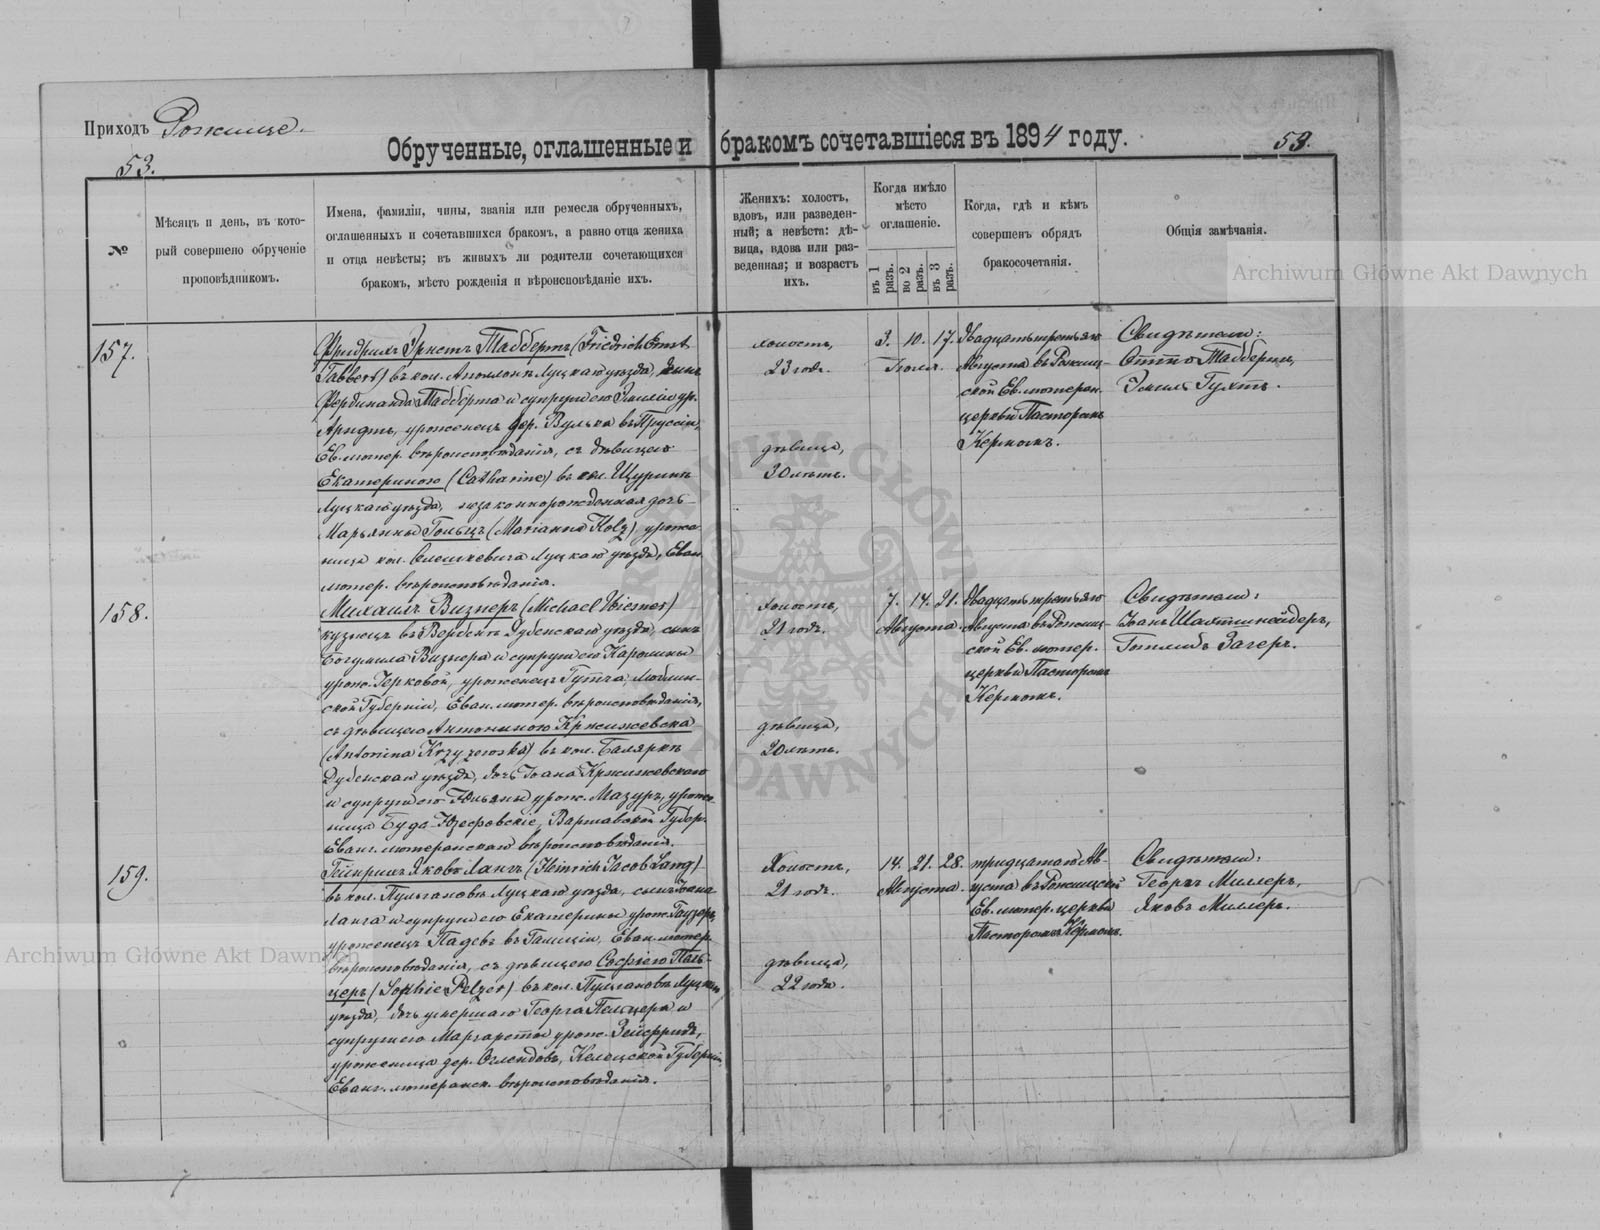 Приходъ Рожище.
53.
Обрученные, оглашенные и бракомъ сочетавшіеся въ 1894 году.
53.
№
Мѣсяцъ и день, въ кото-
рый совершено обрученіе
проповѣдникомъ.
Имена, фамиліи, чины, званія или ремесла обрученныхъ,
оглашенныхъ и сочетавшихся бракомъ, а равно отца жениха
и отца невѣсты; въ живыхъ ли родители сочетающихся
бракомъ, мѣсто рожденія и вѣроисповѣданіе ихъ.
Женихъ: холостъ,
вдовъ, или разведен-
ный; а невѣста: дѣ-
вица, вдова или раз-
веденная; и возрастъ
ихъ.
Когда имѣло
мѣсто
оглашеніе.
въ 1 разъ.
во 2 разъ.
въ 3 разъ.
Когда, гдѣ и кѣмъ
совершенъ обрядъ
бракосочетанія.
Общія замѣчанія.
157.
Фридрихъ Эрнстъ Табберт (Friedrich Ernst
Tabbert) въ кол. Аполлонъ Луцкаго уѣзда, сынъ
Фердинанда Табберта и супруги его Эмиліи ур.
Арндтъ, уроженецъ дер. Вулька въ Пруссіи,
Ев. лютер. вѣроисповѣданія, съ дѣвицею
Екатериною (Catharine) въ кол. Щуринъ
Луцкаго уѣзда, незаконнорожденная дочь
Марьянны Гольцъ (Marianna Holz) уроже-
ница кол. Олешкевича Луцкаго уѣзда, Еван.
лютер. вѣроисповѣданія.
холостъ,
23 годъ.
дѣвица,
30 лѣтъ.
3. 10. 17.
Двадцатьтретьяго
Августа въ Рожищ-
ской Ев. лютеран.
церкви Пасторомъ
Кермомъ.
Свидѣтели:
Отто Таббертъ,
158.
Михаилъ Визнеръ (Michael Wiesner)
кузнецъ въ Вербенъ Дубенскаго уѣзда, сынъ
Богумила Визнера и супруги его Каролины
урож. Герковой, уроженецъ Люблин-
ской Губерніи, Еван. лютер. вѣроисповѣданія,
съ дѣвицею Антониною Кржижевска
(Antonina Krzyzewska) въ кол. Баляркъ
Дубенскаго уѣзда, дочь Іоана Кржижевскаго
и супруги его Юльяны урож. Мазуръ, уроже-
ница Буда-Юзефовскіе, Варшавской Губер.
Еванг. лютеранскаго вѣроисповѣданія.
Холостъ,
21 годъ.
дѣвица,
20 лѣтъ.
7. 14. 21.
Августа.
Двадцатьтретьяго
Августа въ Рожищ-
ской Ев. лютер.
церкви Пасторомъ
Кермомъ.
Свидѣтели:
Іоанъ Шлятшнейдеръ,
Готлибъ Загеръ.
159.
Гейнрихъ Яковъ Лангъ (Heinrich Jacob Lang)
въ кол. Пульгановъ Луцкаго уѣзда, сынъ Іоана
Ланга и супруги его Екатерины урож. Гаузеръ,
уроженецъ Падевъ въ Галиціи, Еван. лютер.
вѣроисповѣданія, съ дѣвицею Софіею Пель-
церъ (Sophie Pelzer) въ кол. Пульгановъ Луцкаго
уѣзда, дочь умершаго Георга Пельцера и
супруги его Маргареты урож. Зейфридъ,
уроженица дер. Оглендовъ, Келецской Губерніи,
Еванг. лютеранск. вѣроисповѣданія.
Холостъ,
21 годъ.
дѣвица,
22 года.
14. 21. 28.
Августа.
тридцатаго Ав-
густа въ Рожищской
Ев. лютер. церкви
Пасторомъ Кермомъ.
Свидѣтели:
Георгъ Миллеръ,
Яковъ Миллеръ.
Archiwum Główne Akt Dawnych
Archiwum Główne Akt Dawnych
ARCHIWUM GŁÓWNE AKT DAWNYCH